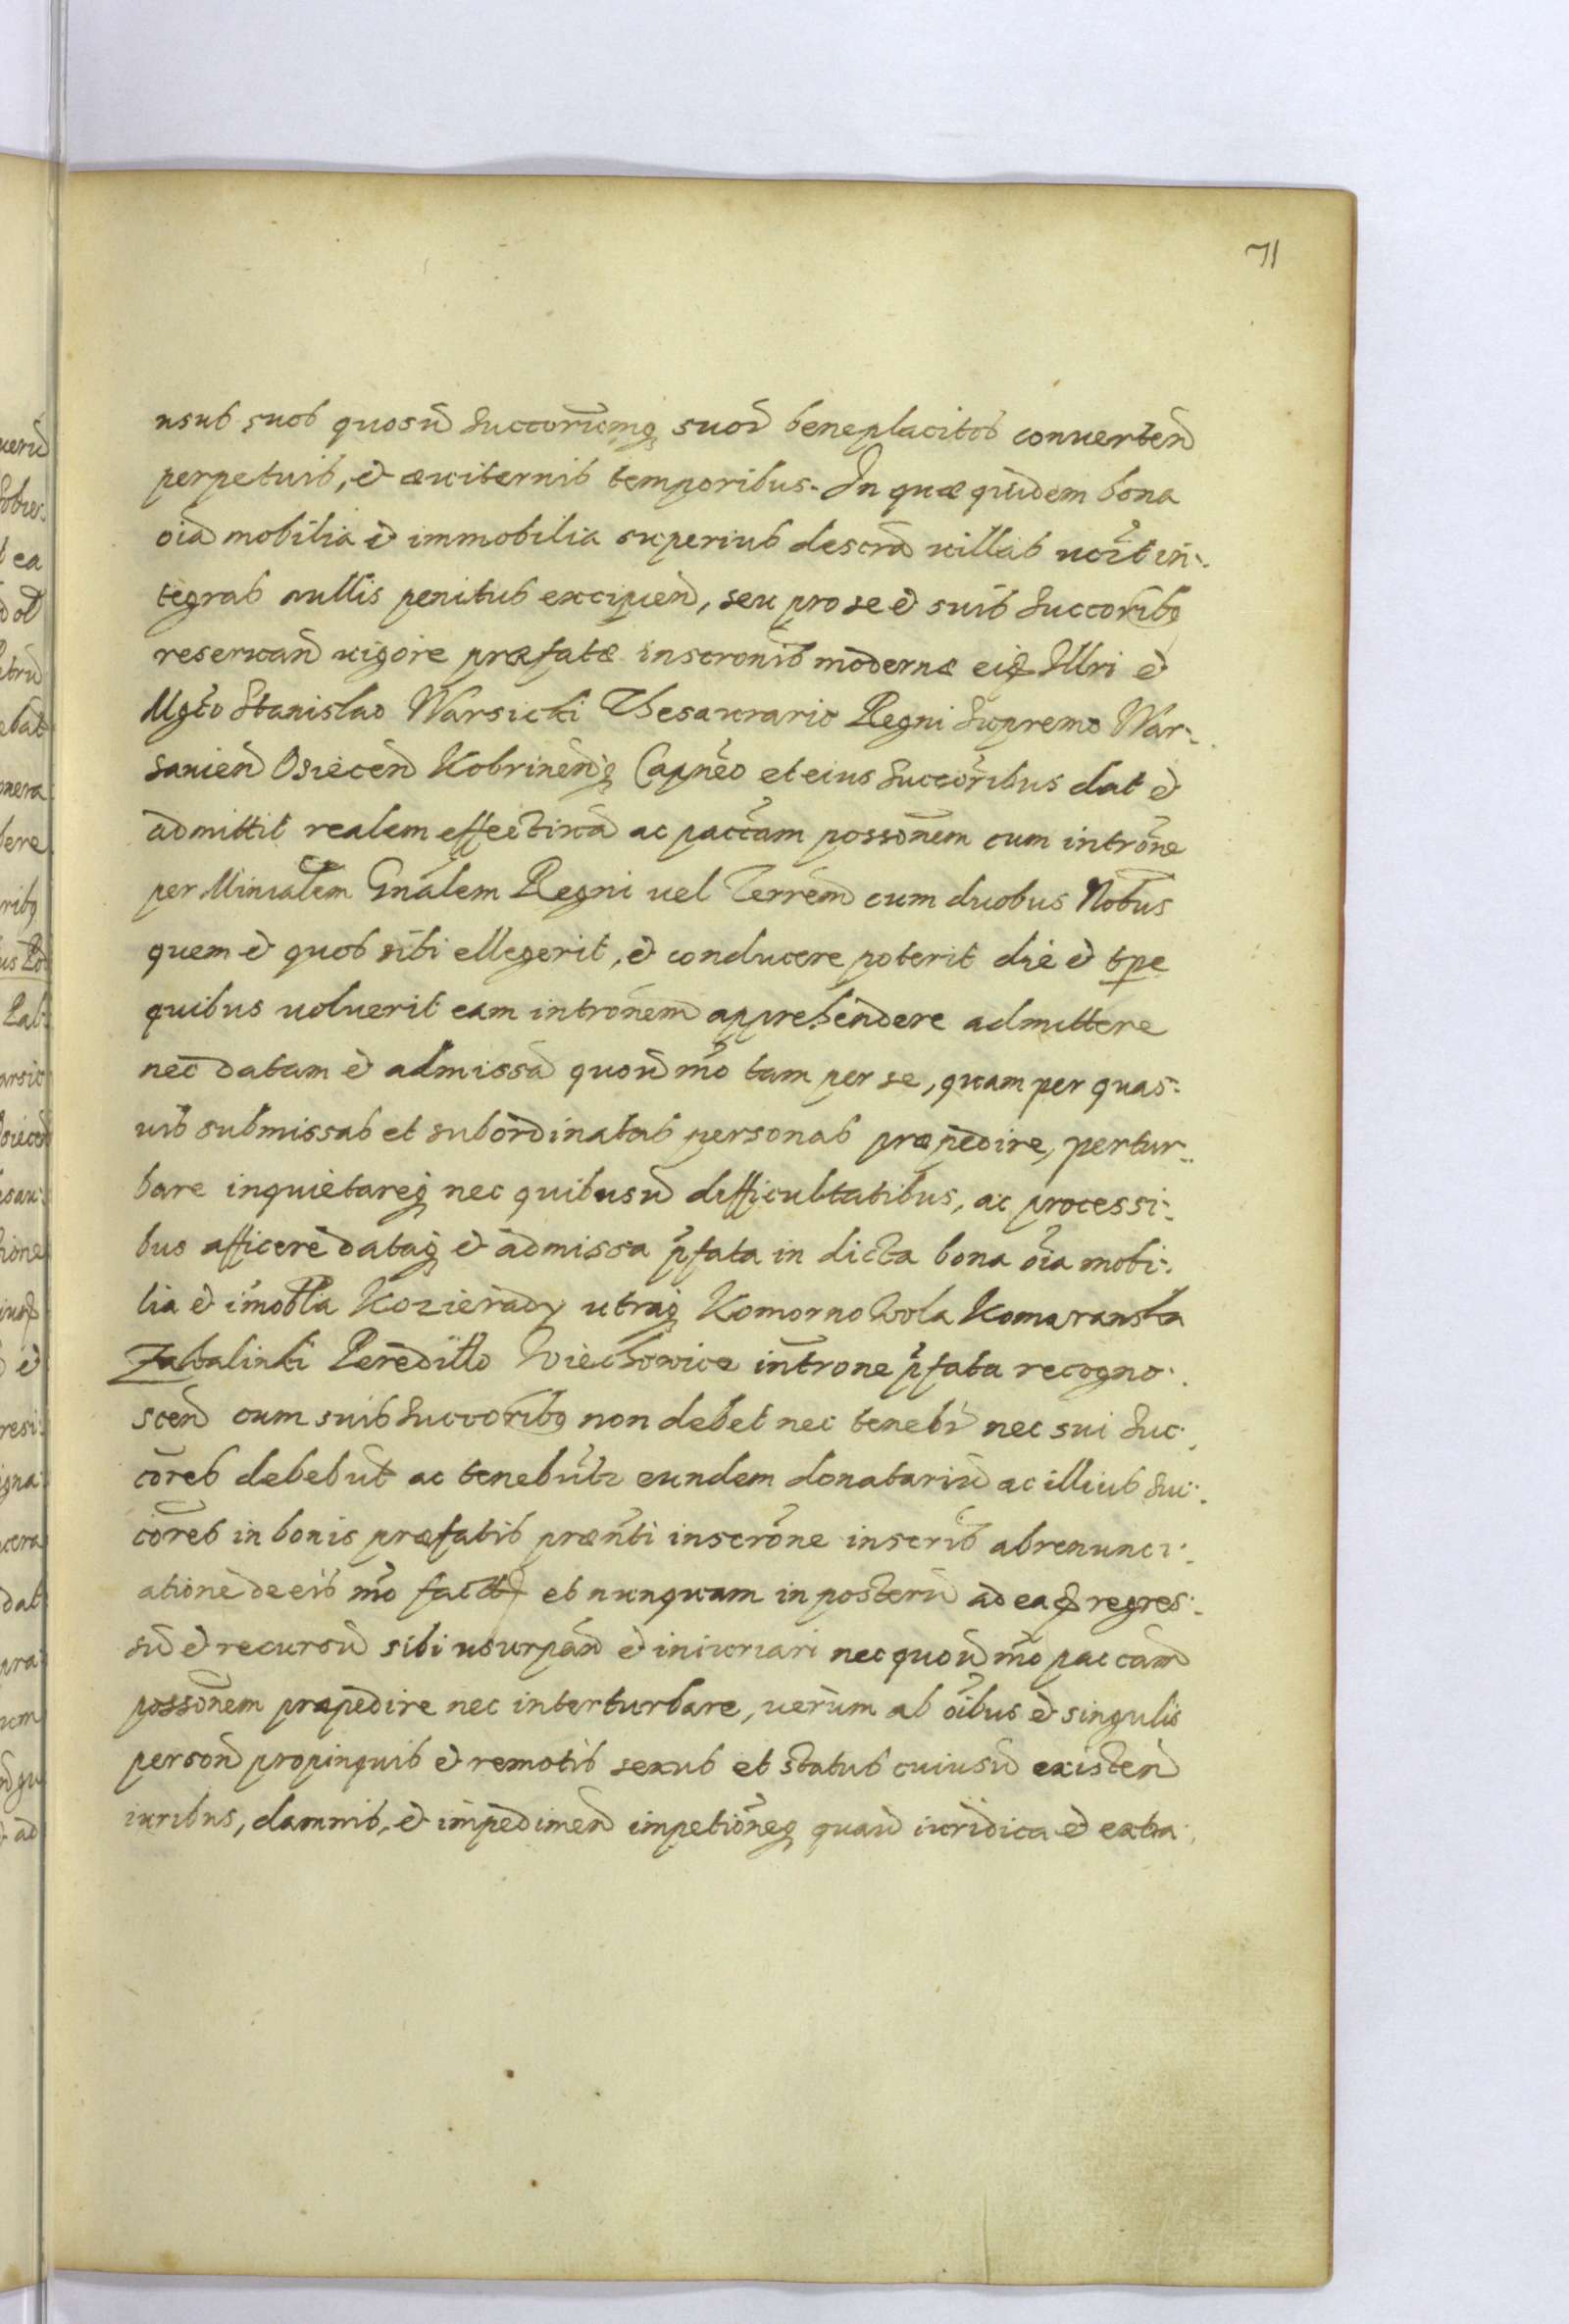 71
usus suos quosũ Succorũmq̃ suor̃ beneplacitos conuerten̄
perpetuis, et æuiternis temporibus. In quæ quidem bona
oiã mobilia et immobilia superius descrã uillas ucĩt in-
tegras nullis penitus excipien̄, seu pro se et suis Succoribq
reseruan̄ uigore præfatæ inscronis modernæ eid Illri et
Mgco Stanislao Warsicki Thesaurario Regni Supremo War-
sauien̄ Osiecen̄ Kobrinen̄q Capneo et eius Succoribus dat et
admittit realem effectiuã ac paccam possonem cum introne
per Minialem Gnalem Regni uel Terren̄ cum duobus Nobus
quem et quos sibi ellegerit, et conducere poterit die et tpe
quibus uoluerit eam intronem apprehendere admittere
nec datam et admissã quouis mõ tam per se, quam per quas-
uis submissas et subordinatas personas præpedire, pertur-
bare inquietareq nec quibusũ difficultatibus, ac processi-
bus afficere dataq et admissa p̃fata in dicta bona oia mobi-
lia et imobla Kozierady utraq Komorno Wola Komaranska
Zakalinki Peredillo Wiechowice introne p̃fata recogno-
scen̄ cum suis Succoribq non debet nec tenebr nec sui Suc-
cores debebũt ac tenebũtr eundem donatariũ ac illius Suc-
cores in bonis præfatis præñti inscrone inscris abrenunci-
atione de eis mõ facta et nunquam in posterũ ad ead regres-
sũ et recursũ sibi usurpan̄ et iniuriari nec quouis mõ paccam
possonem præpedire nec interturbare, uerum ab oibus et singulis
person̄ propinquis et remotis sexus et status cuiusũ existen̄
iuribus, damnis, et impedimen̄ impetioneq quauis iuridica et extra